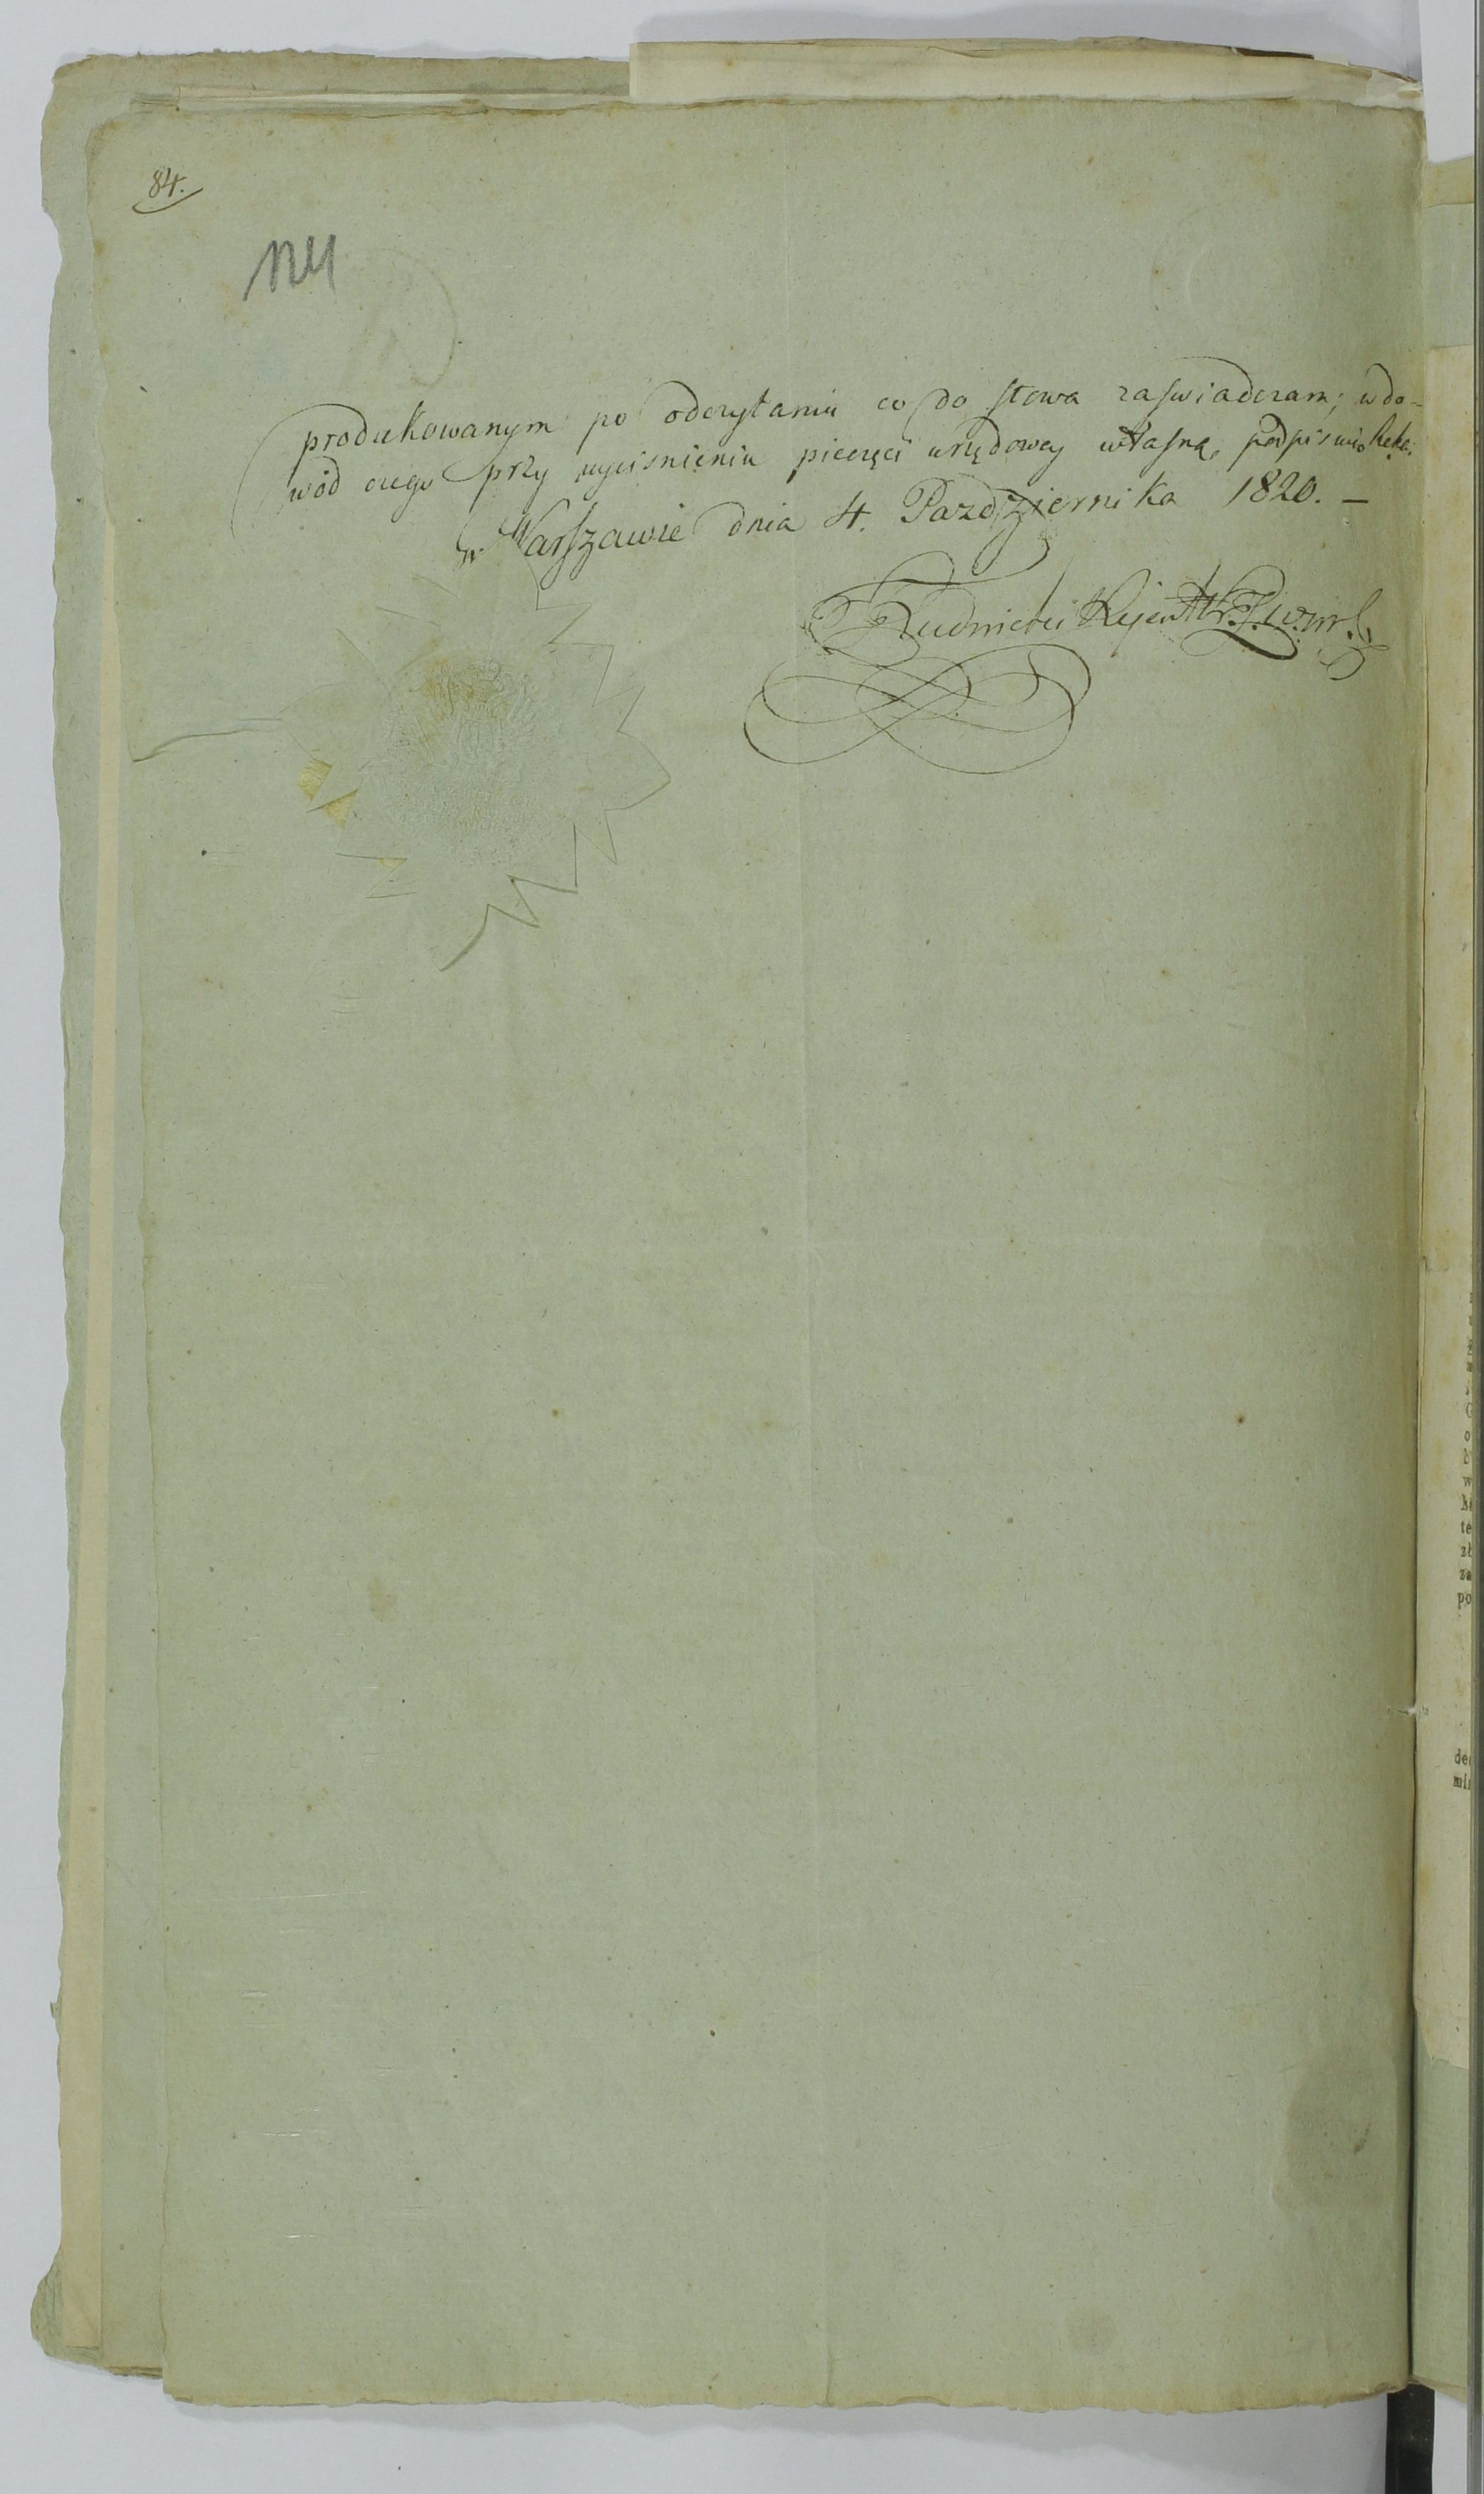 84.
produkowanym po odczytaniu co do słowa zaswiadczam; w do-
wód czego przy wyciśnieniu pieczęci urzędowey własną podpisuię Ręką.
w Warszawie dnia 4. Pazdziernika 1820. –
Rudnicki Rejent